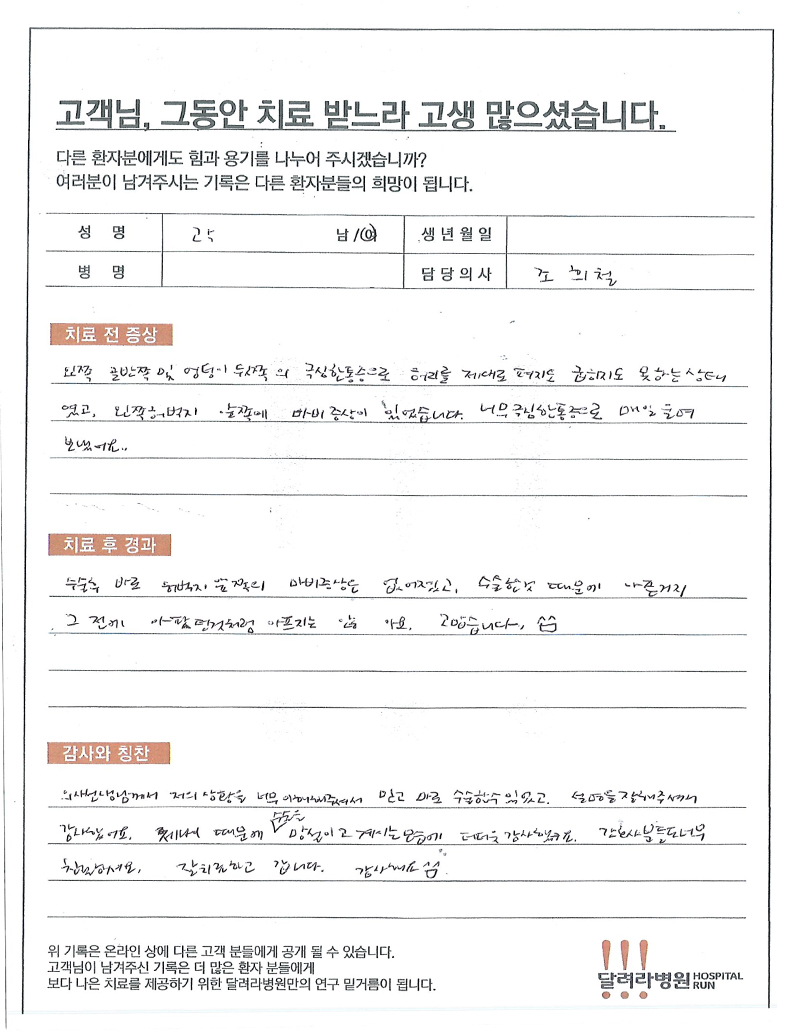 고객님, 그동안 치료 받느라 고생 많으셨습니다.
다른 환자분에게도 힘과 용기를 나누어 주시겠습니까?
여러분이 남겨주시는 기록은 다른 환자분들의 희망이 됩니다.
성 명 남/여 생년월일
병 명 담당의사 조 희 철
치료 전 증상
왼쪽 골반쪽 및 엉덩이 뒤쪽의 극심한통증으로 허리를 제대로 펴지도 굽히지도 못하는상태
였고, 왼쪽허벅지 마비증상이 있었습니다. 너무극심한통증으로 매일 울며
보냈어요..
치료 후 경과
수술후 바로 허벅지 마비증상은 없어졌고, 수술한것 때문에
그 전에 아팠던것처럼 아프지는 않아요. 고맙습니다,
감사와 칭찬
의사선생님께서 저의상황을 너무 이해해주셔서 믿고 바로 수술할수있었고. 설명을잘해주셔서
감사했어요. 때문에 수술을 망설이고 계시는 더더욱 감사했구요. 간호사분들도너무
친절하세요. 잘치료하고 갑니다. 감사해요
위 기록은 온라인 상에 다른 고객 분들에게 공개 될 수 있습니다.
고객님이 남겨주신 기록은 더 많은 환자 분들에게
보다 나은 치료를 제공하기 위한 달려라병원만의 연구 밑거름이 됩니다.
달려라병원 HOSPITAL RUN